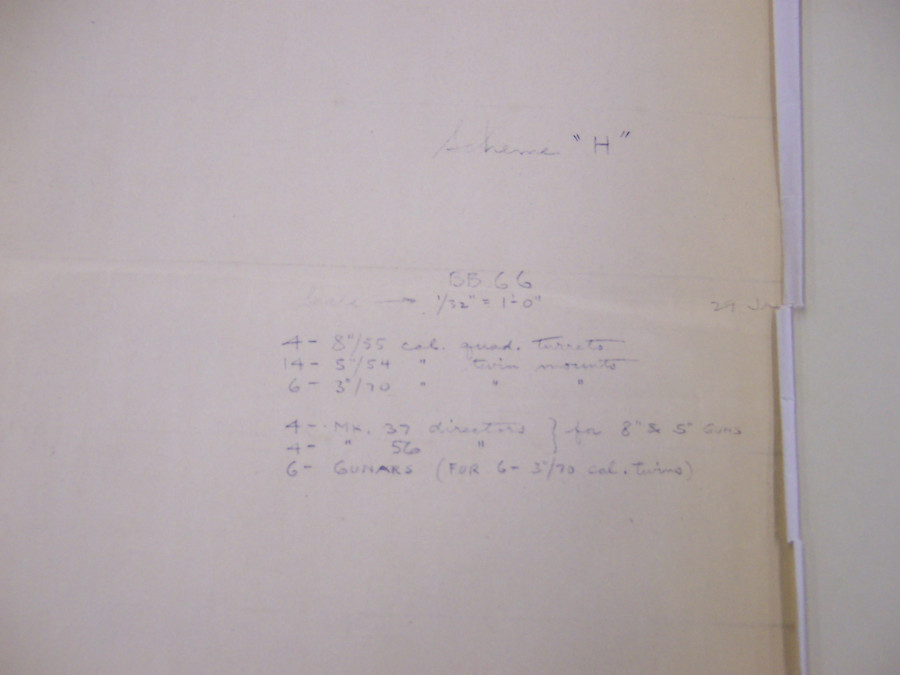 Scheme "H"
BB 66
1/32" = 1'-0"
29
4- 8"/55 cal. quad. turrets
14- 5"/54 " twin mounts
6- 3"/70 " " "
4- Mk. 37 directors } for 8" & 5" Guns
4- " 56 "
6- GUNARS (FOR 6- 3"/70 cal. twins)